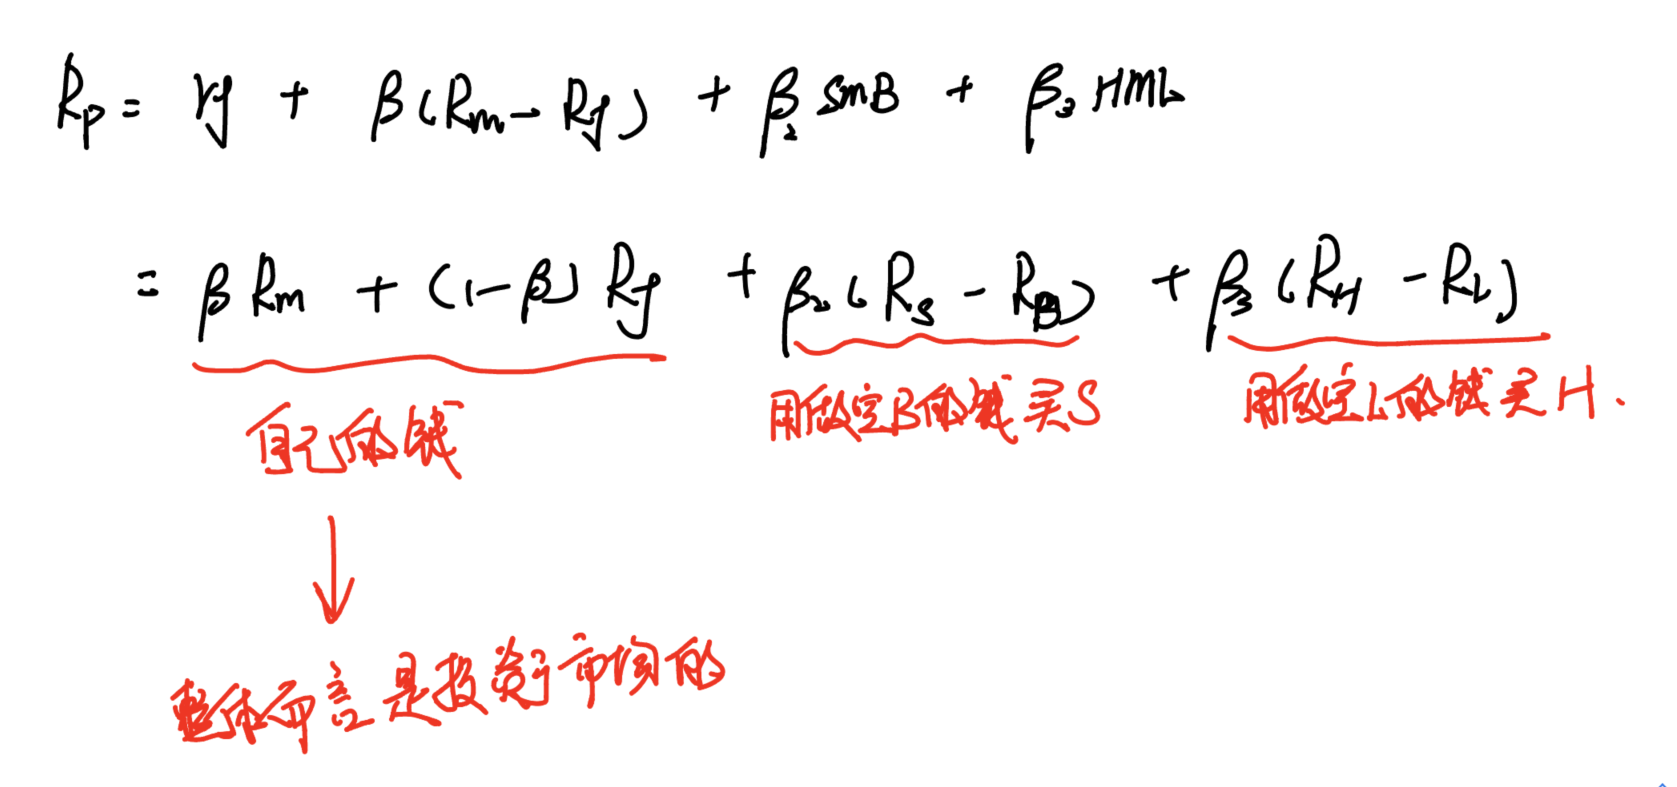 Rp = rf + β(Rm - Rf) + β₂ SMB + β₃ HML
= βRm + (1-β) Rf + β₂(Rs - RB) + β₃(RH - RL)
自己的钱
用做空B的钱买S
用做空L的钱买H.
整体而言是投资于市场的